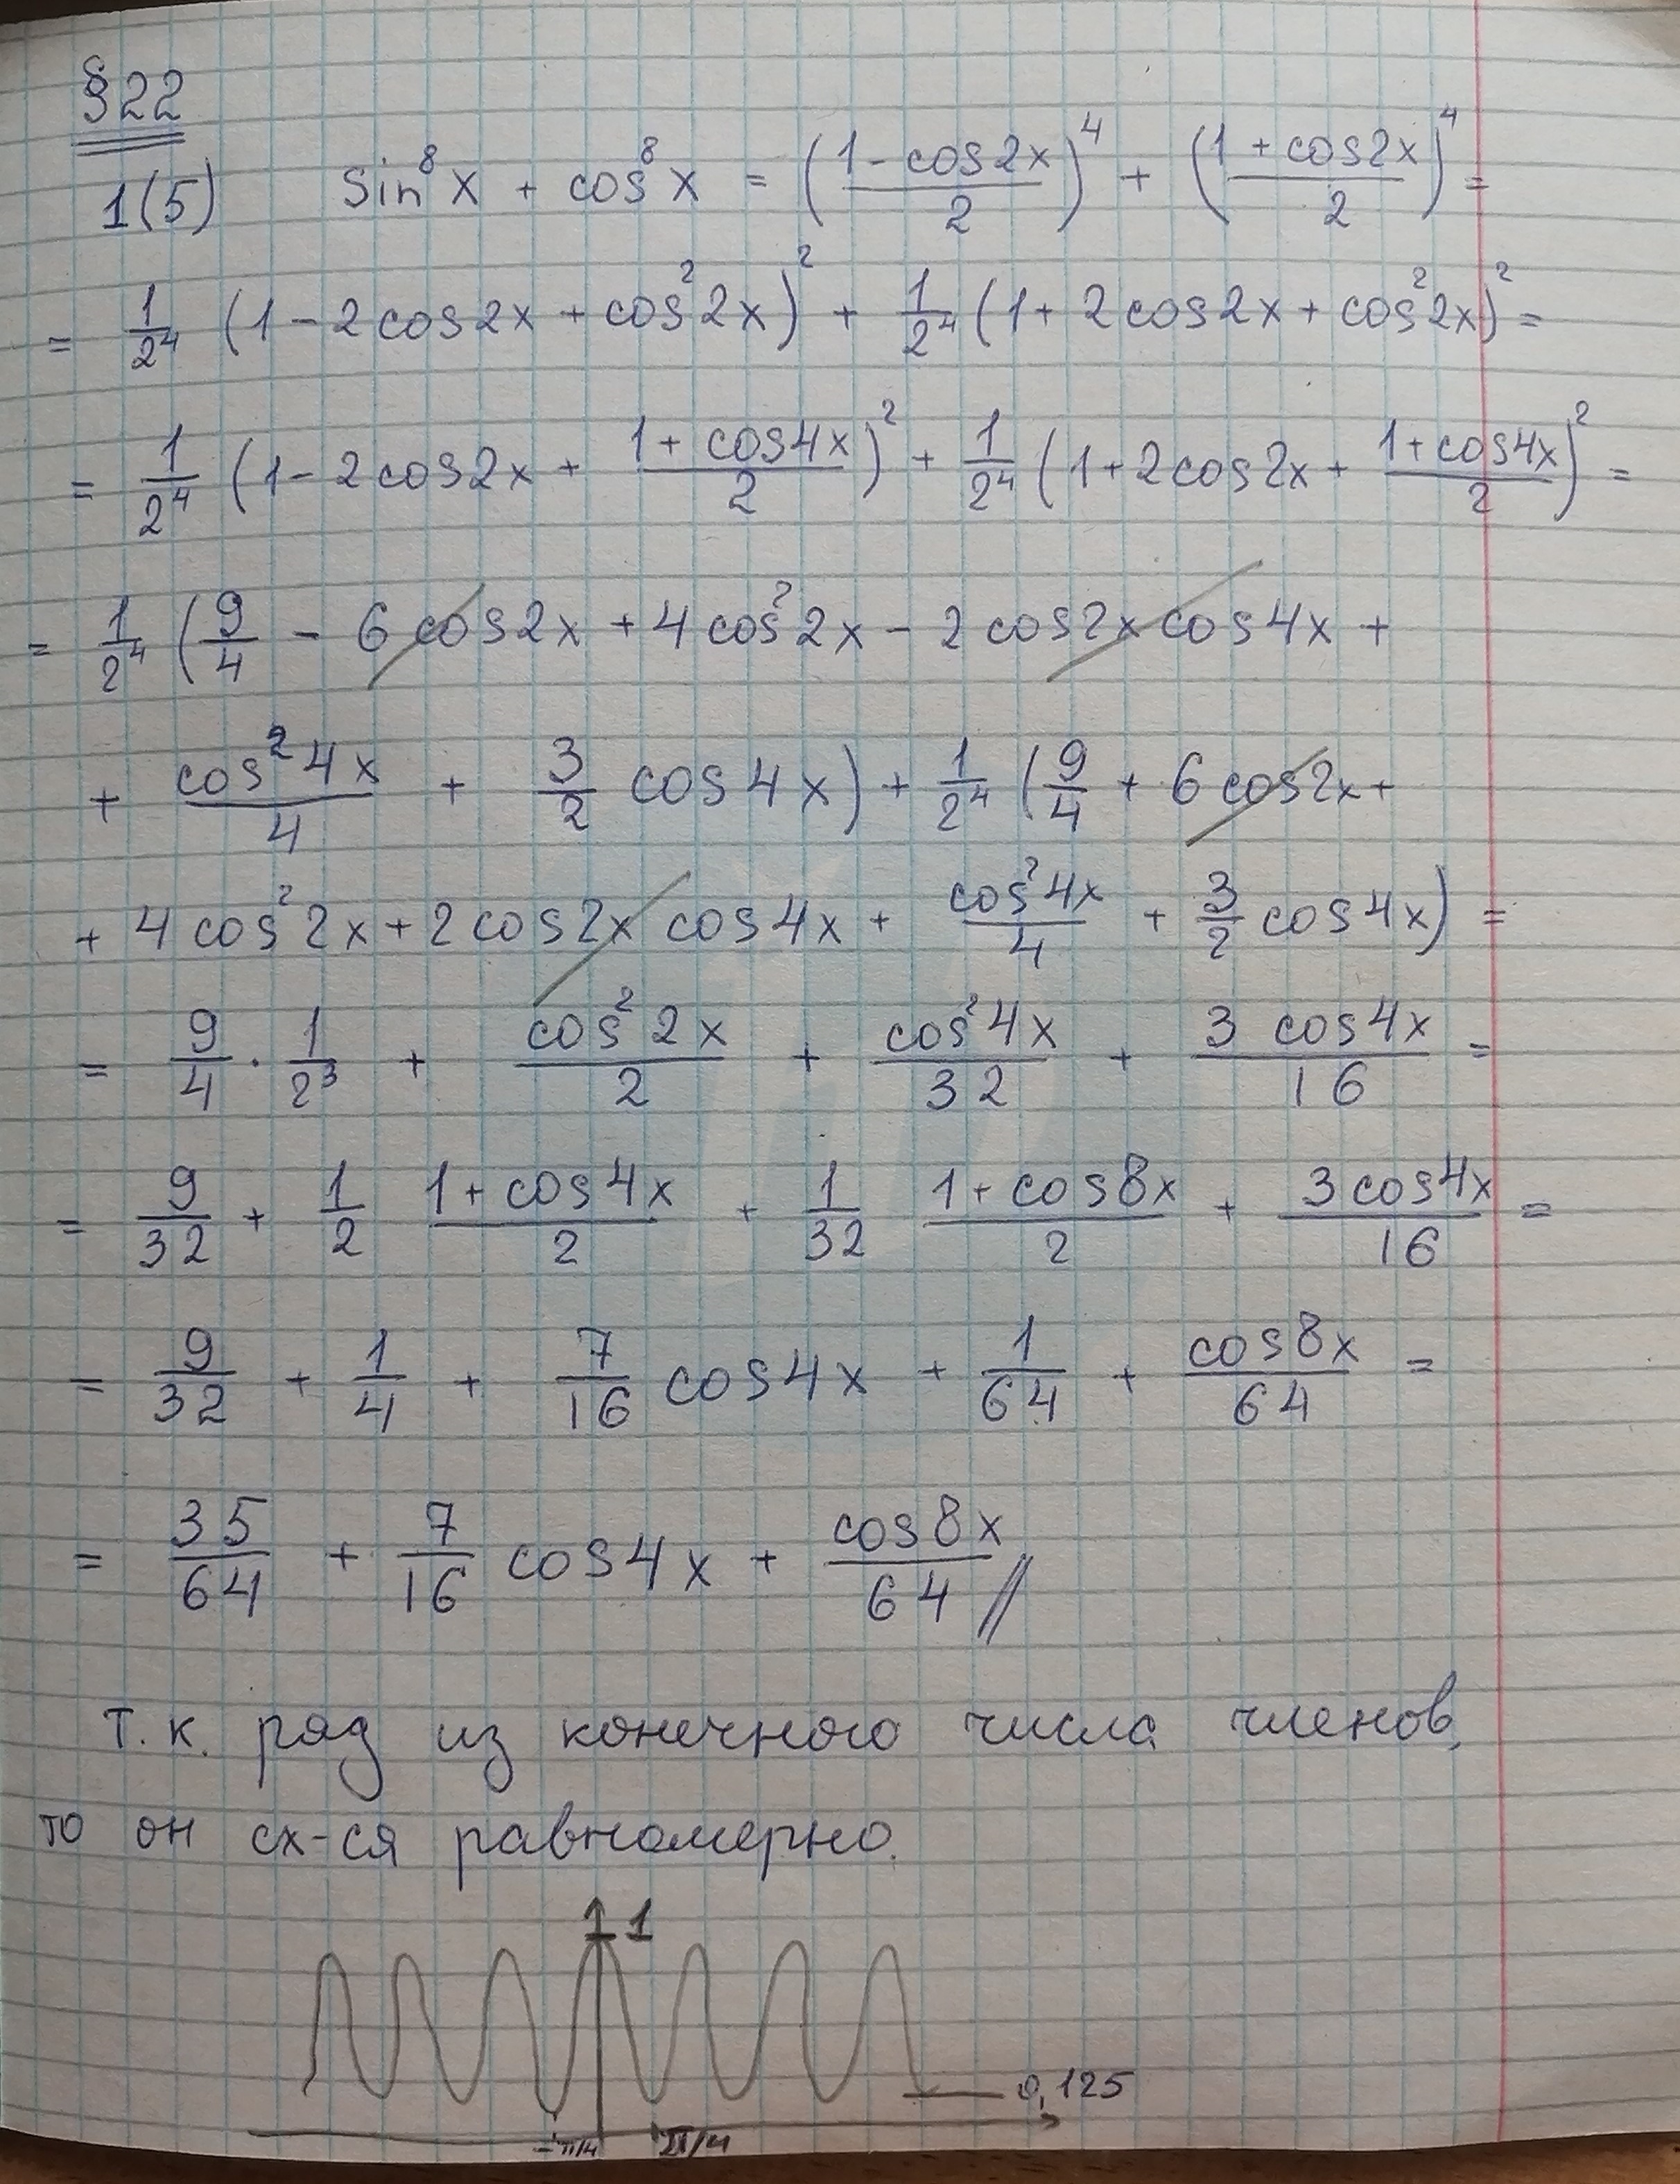 §22
1(5) sin⁸x + cos⁸x = ((1 - cos2x)/2)⁴ + ((1 + cos2x)/2)⁴ =
= 1/2⁴ (1 - 2cos2x + cos²2x)² + 1/2⁴ (1 + 2cos2x + cos²2x)² =
= 1/2⁴ (1 - 2cos2x + (1 + cos4x)/2)² + 1/2⁴ (1 + 2cos2x + (1 + cos4x)/2)² =
= 1/2⁴ (9/4 - 6cos2x + 4cos²2x - 2cos2x cos4x +
+ cos²4x/4 + 3/2 cos4x) + 1/2⁴ (9/4 + 6cos2x +
+ 4cos²2x + 2cos2x cos4x + cos²4x/4 + 3/2 cos4x) =
= 9/4 · 1/2³ + cos²2x/2 + cos²4x/32 + 3 cos4x/16 =
= 9/32 + 1/2 (1 + cos4x)/2 + 1/32 (1 + cos8x)/2 + 3cos4x/16 =
= 9/32 + 1/4 + 7/16 cos4x + 1/64 + cos8x/64 =
= 35/64 + 7/16 cos4x + cos8x/64 //
т.к. ряд из конечного числа членов,
то он сх-ся равномерно.
1
0,125
-π/4 π/4